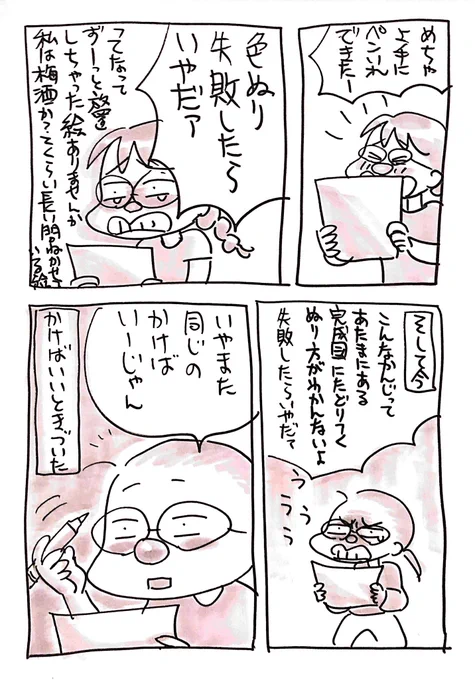 めちゃ
上手に
ペンいれ
できたー
色ぬり
失敗したら
いやだァ
ってなって
ずーっと放置
しちゃった絵ありませんか
私は梅酒か?てくらい長い間ねかせて
いる絵
そして今
こんなかんじって
あたまにある
完成図にたどりつく
ぬり方がわかんないよ
失敗したらいやだァ
うっ
ううう
いやまた
同じの
かけば
いーじゃん
かけばいいときづいた